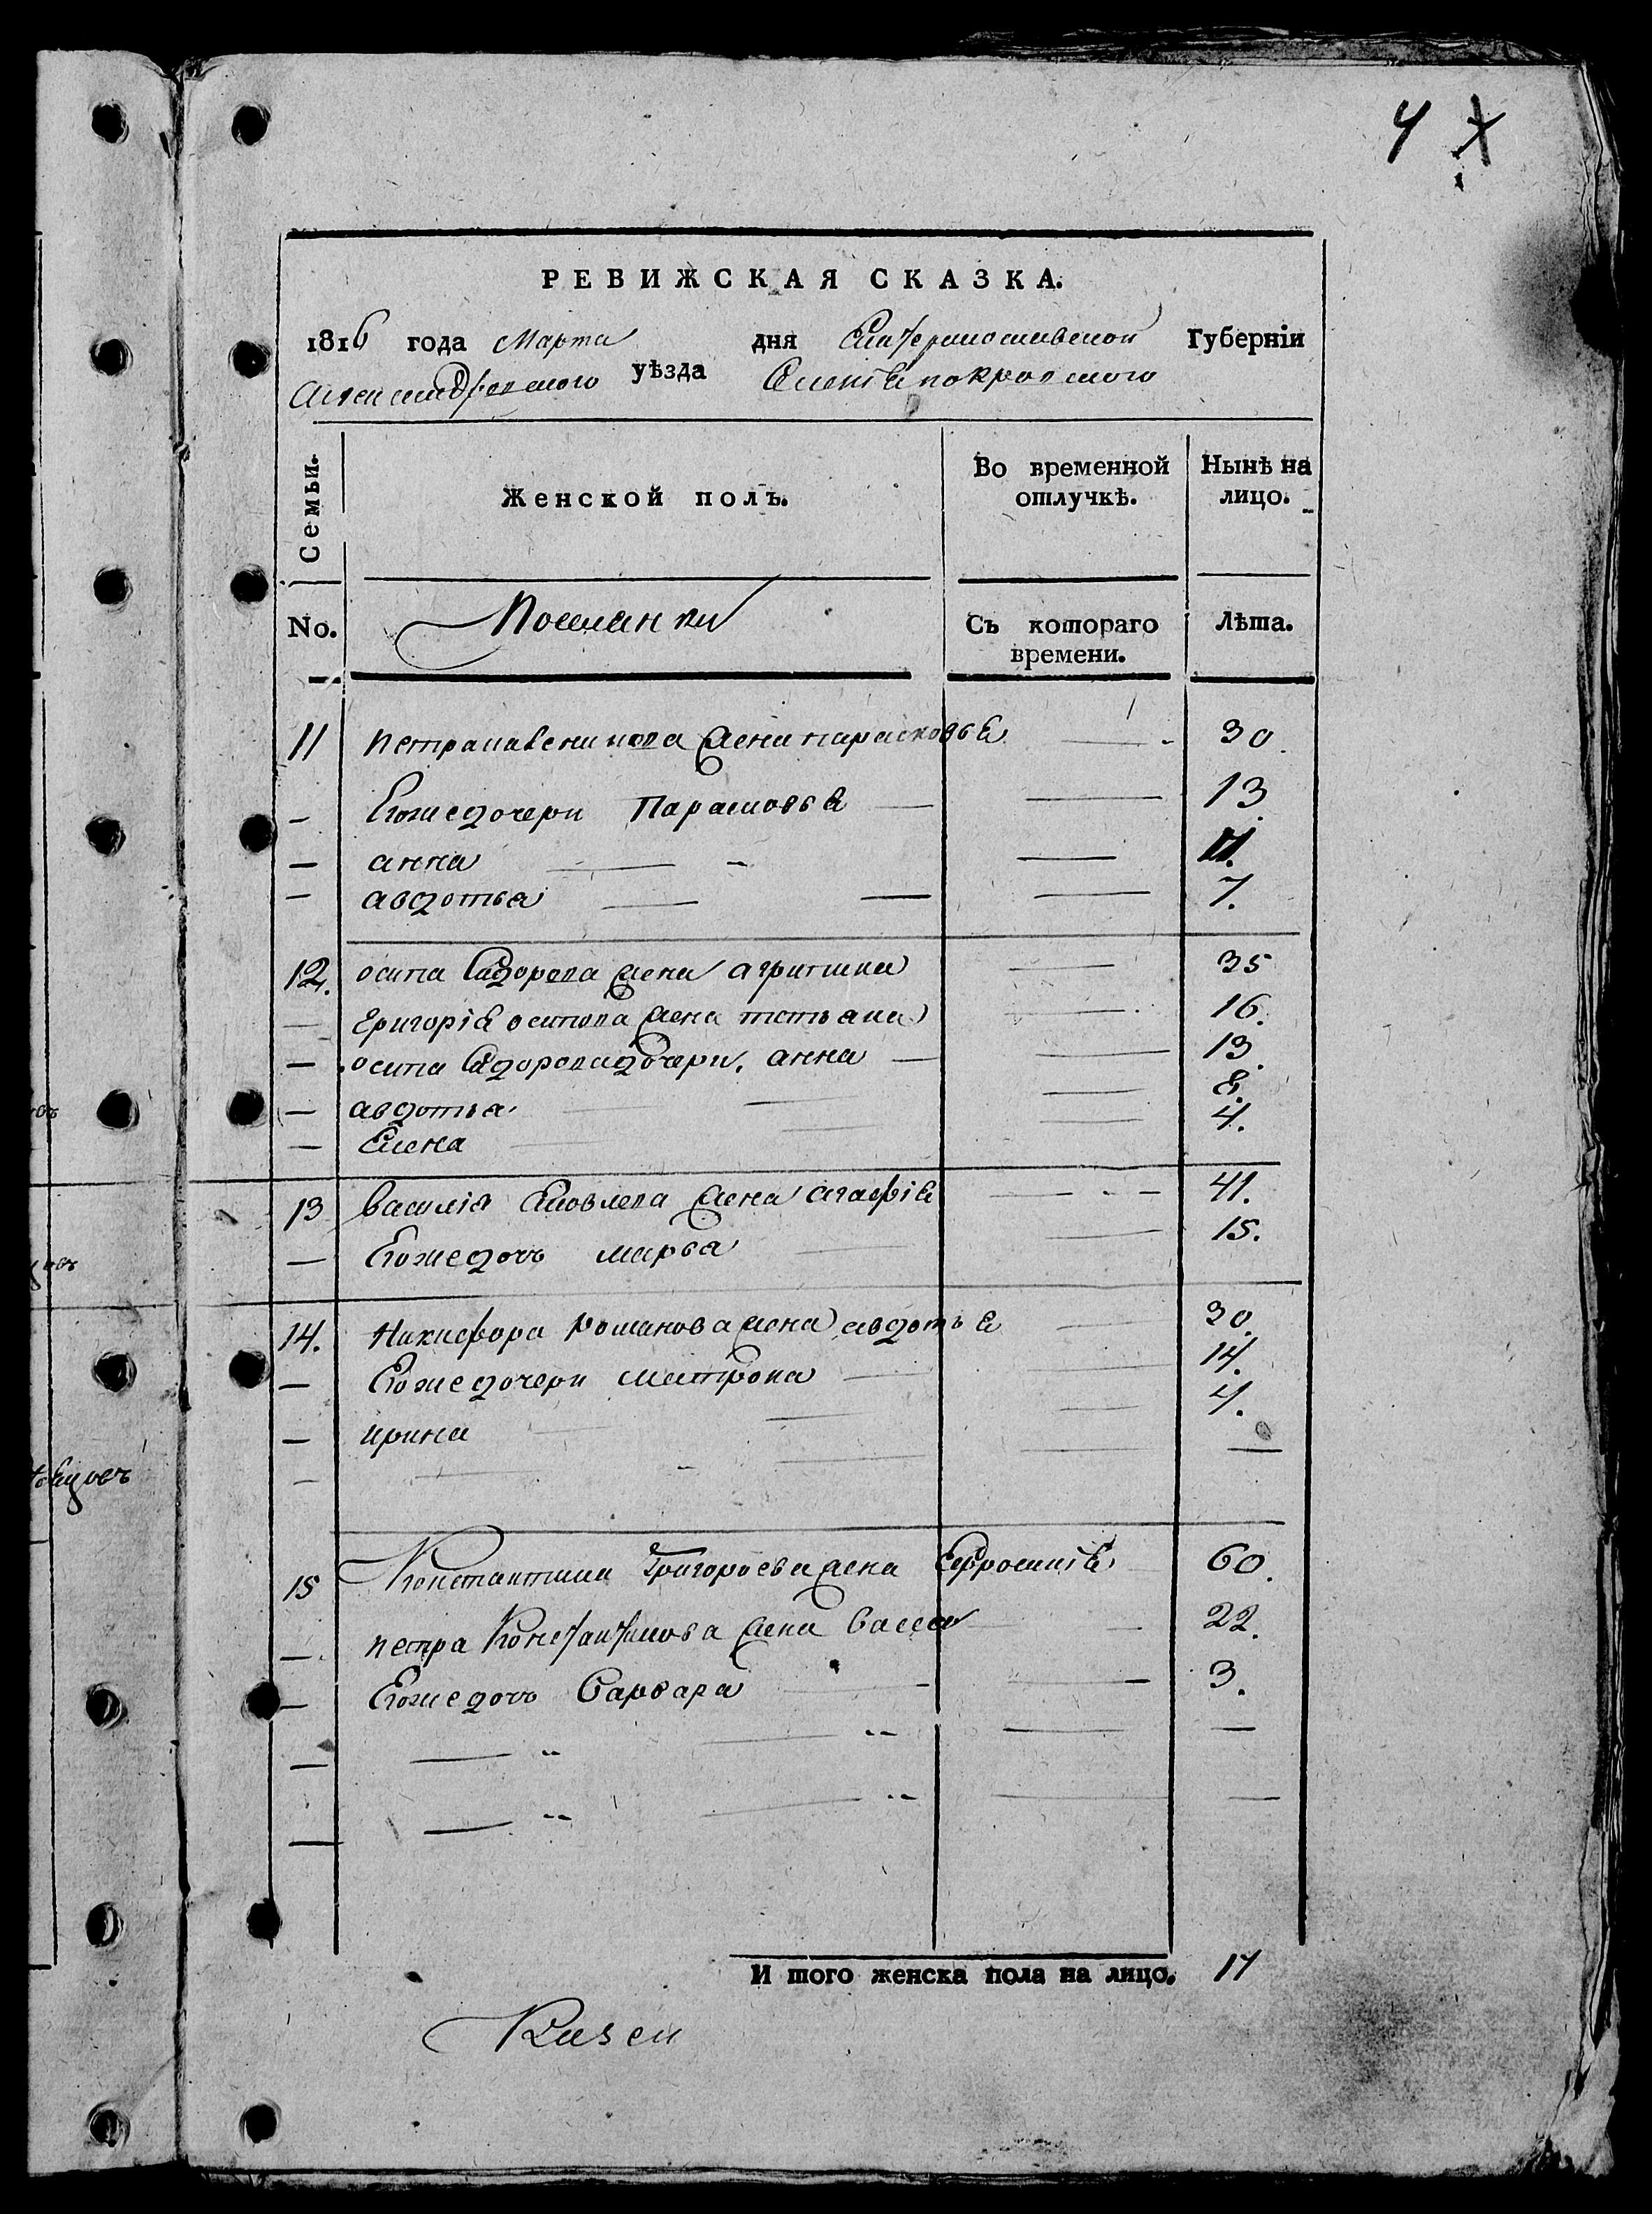 4
РЕВИЖСКАЯ СКАЗКА.
1816 года Марта дня Екатеринославской Губерніи
Александровского уѣзда покровского
Семьи. Женской полъ. Во временной отлучкѣ. Нынѣ на лицо.
No. Съ котораго времени. Лѣта.
11 петра жена парасковья — 30.
— Егоже дочери Парасковья — — 13.
— анна — — 11.
— авдотья — — — 7.
12. осипа Сидорова жена агрипина — 35
— Григорія осипова жена татьяна — 16.
— осипа Сидорова дочери. анна — — 13.
— авдотья — — — 8.
— Елена — — — 4.
13 василія Яковлева жена агафія — 41.
— Егоже дочь марва — — 15.
14. Никифора Романова жена авдотья — 30.
— Егоже дочери матрона — — 14.
— ирина — — — 4.
— — — — —
15 Константина Григорьева жена Ефросинія 60.
— петра Константинова жена васса — 22.
— Егоже дочь Варвара — — 3.
— — — — —
— — — — —
И того женска пола на лицо. 17